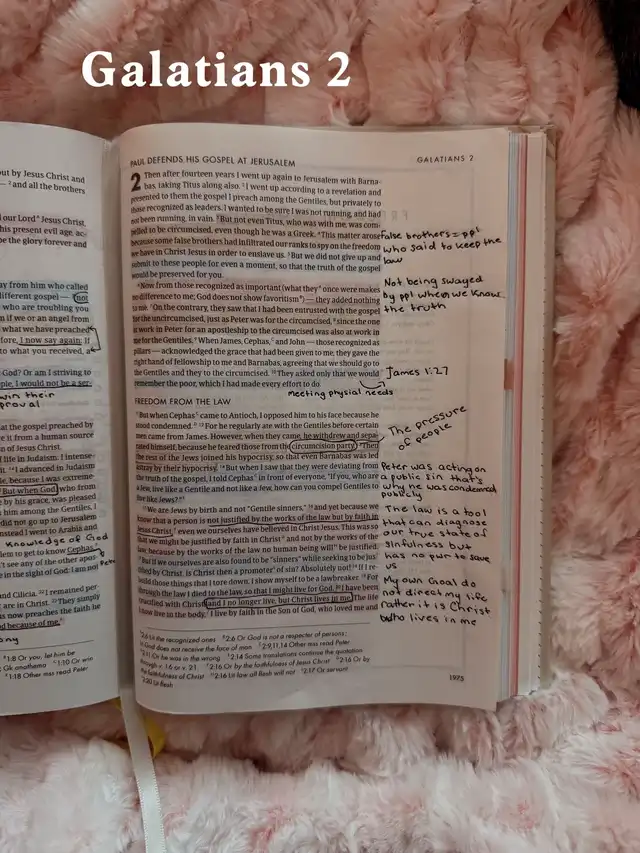 Galatians 2
out by Jesus Christ and
— ² and all the brothers
our Lord" Jesus Christ,
his present evil age, ac-
be the glory forever and
ay from him who called
different gospel — ⁷ not
who are troubling you
n if we or an angel from
what we have preached
fore, I now say again: If
to what you received, a
God? Or am I striving to
ple, I would not be a ser-
win their
proval
at the gospel preached by
e it from a human source
n of Jesus Christ.
life in Judaism: I intense-
it. ¹⁴ I advanced in Judaism
le, because I was extreme-
But when God who from
by his grace, was pleased
him among the Gentiles, I
did not go up to Jerusalem
instead I went to Arabia and
Knowledge of God
lem to get to know Cephas,
Peter
n't see any of the other apos-
e in the sight of God: I am not
and Cilicia. ²² I remained per-
are in Christ. ²³ They simply
us now preaches the faith he
d because of me."
ony
1:8 Or you, let him be
Gk anathema 1:10 Or win
1:18 Other mss read Peter
PAUL DEFENDS HIS GOSPEL AT JERUSALEM
GALATIANS 2
2 Then after fourteen years I went up again to Jerusalem with Barna-
bas, taking Titus along also. ² I went up according to a revelation and
presented to them the gospel I preach among the Gentiles, but privately to
those recognized as leaders. I wanted to be sure I was not running, and had
not been running, in vain. ³ But not even Titus, who was with me, was com-
pelled to be circumcised, even though he was a Greek. ⁴ This matter arose
because some false brothers had infiltrated our ranks to spy on the freedom
we have in Christ Jesus in order to enslave us. ⁵ But we did not give up and
submit to these people for even a moment, so that the truth of the gospel
would be preserved for you.
False brothers = ppl
who said to keep the
law
⁶ Now from those recognized as important (what they once were makes
no difference to me; God does not show favoritism) — they added nothing
to me. ⁷ On the contrary, they saw that I had been entrusted with the gospel
for the uncircumcised, just as Peter was for the circumcised, ⁸ since the one
at work in Peter for an apostleship to the circumcised was also at work in
me for the Gentiles. ⁹ When James, Cephas, and John — those recognized as
pillars — acknowledged the grace that had been given to me, they gave the
right hand of fellowship to me and Barnabas, agreeing that we should go to
the Gentiles and they to the circumcised. ¹⁰ They asked only that we would
remember the poor, which I had made every effort to do.
Not being swayed
by ppl when we know
the truth
James 1:27
meeting physial needs
FREEDOM FROM THE LAW
¹¹ But when Cephas came to Antioch, I opposed him to his face because he
stood condemned. ¹² For he regularly ate with the Gentiles before certain
men came from James. However, when they came, he withdrew and sepa-
rated himself, because he feared those from the circumcision party. ¹³ Then
the rest of the Jews joined his hypocrisy, so that even Barnabas was led
astray by their hypocrisy. ¹⁴ But when I saw that they were deviating from
the truth of the gospel, I told Cephas in front of everyone, "If you, who are
a Jew, live like a Gentile and not like a Jew, how can you compel Gentiles to
live like Jews?"
The pressure
of people
Peter was acting on
a public sin that's
why he was condemned
publicly
¹⁵ We are Jews by birth and not "Gentile sinners," ¹⁶ and yet because we
know that a person is not justified by the works of the law but by faith in
Jesus Christ, even we ourselves have believed in Christ Jesus. This was so
that we might be justified by faith in Christ and not by the works of the
law, because by the works of the law no human being will be justified.
¹⁷ But if we ourselves are also found to be "sinners" while seeking to be jus-
tified by Christ, is Christ then a promoter of sin? Absolutely not! ¹⁸ If I re-
build those things that I tore down, I show myself to be a lawbreaker. ¹⁹ For
through the law I died to the law, so that I might live for God. ²⁰ I have been
crucified with Christ, and I no longer live, but Christ lives in me. The life
I now live in the body, I live by faith in the Son of God, who loved me and
The law is a tool
that can diagnose
our true state of
sinfulness but
has no pwr to save
us
My own Goal do
not direct my life
rather it is Christ
who lives in me
2:6 Lit the recognized ones 2:6 Or God is not a respecter of persons;
lit God does not receive the face of man 2:9,11,14 Other mss read Peter
2:11 Or he was in the wrong 2:14 Some translations continue the quotation
through v. 16 or v. 21. 2:16 Or by the faithfulness of Jesus Christ 2:16 Or by
the faithfulness of Christ 2:16 Lit law all flesh will not 2:17 Or servant
2:20 Lit flesh
1975